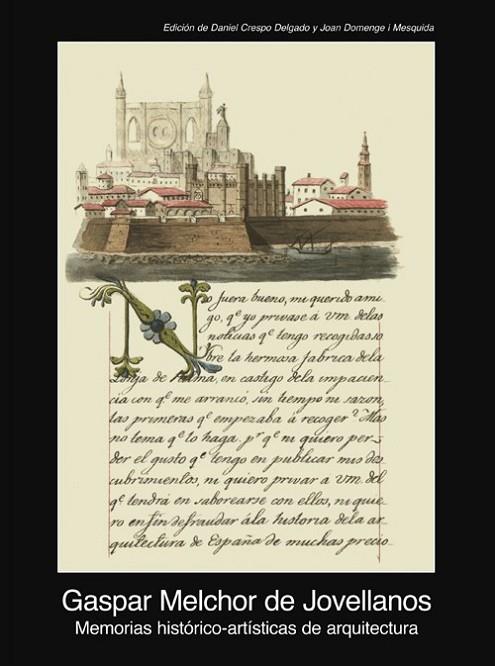 Edición de Daniel Crespo Delgado y Joan Domenge i Mesquida
No fuera bueno, mi querido ami-
go, qe yo privase á vm. delas
noticias qe tengo recogidas so
bre la hermosa fabrica dela
Lonja de Palma, en castigo dela impacien-
cia con qe me arrancó, sin tiempo ni sazon,
las primeras qe empezaba à recoger? Mas
no tema qe lo haga. pr qe ni quiero per-
der el gusto qe tengo en publicar mis des
cubrimientos, ni quiero privar a vm. del
qe tendrá en saborearse con ellos, ni quie-
ro en fin defraudar àla historia dela ar
quitectura de España de muchas precio
Gaspar Melchor de Jovellanos
Memorias histórico-artísticas de arquitectura